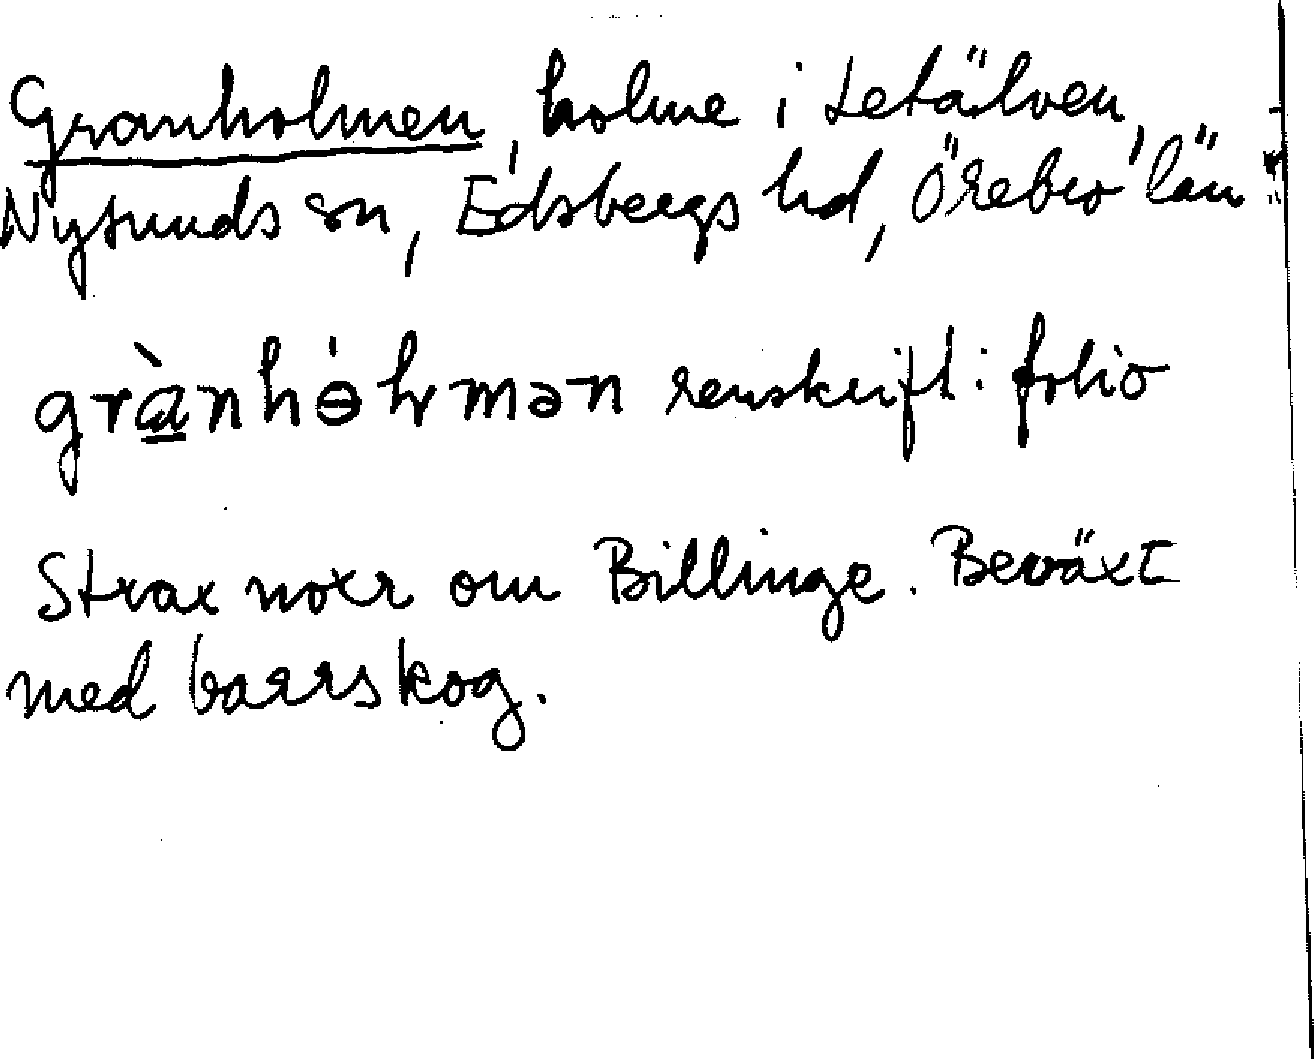 Granholmen, holme i Letälven,
Nysunds sn, Edsbergs hd, Örebro län
grànhɵ́lmən renskrift: folio
Strax norr om Billinge. Beväxt
med barrskog.